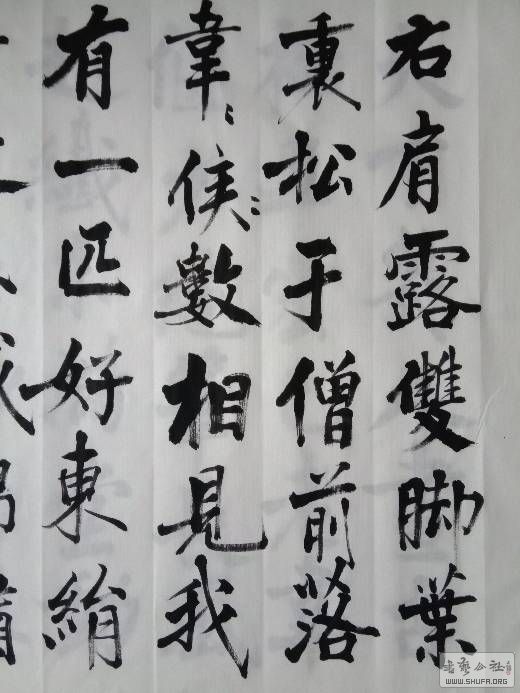 右肩露雙脚葉
裏松子僧前落
韋〻侯〻數相見我
有一匹好東絹
書藝公社
WWW.SHUFA.ORG